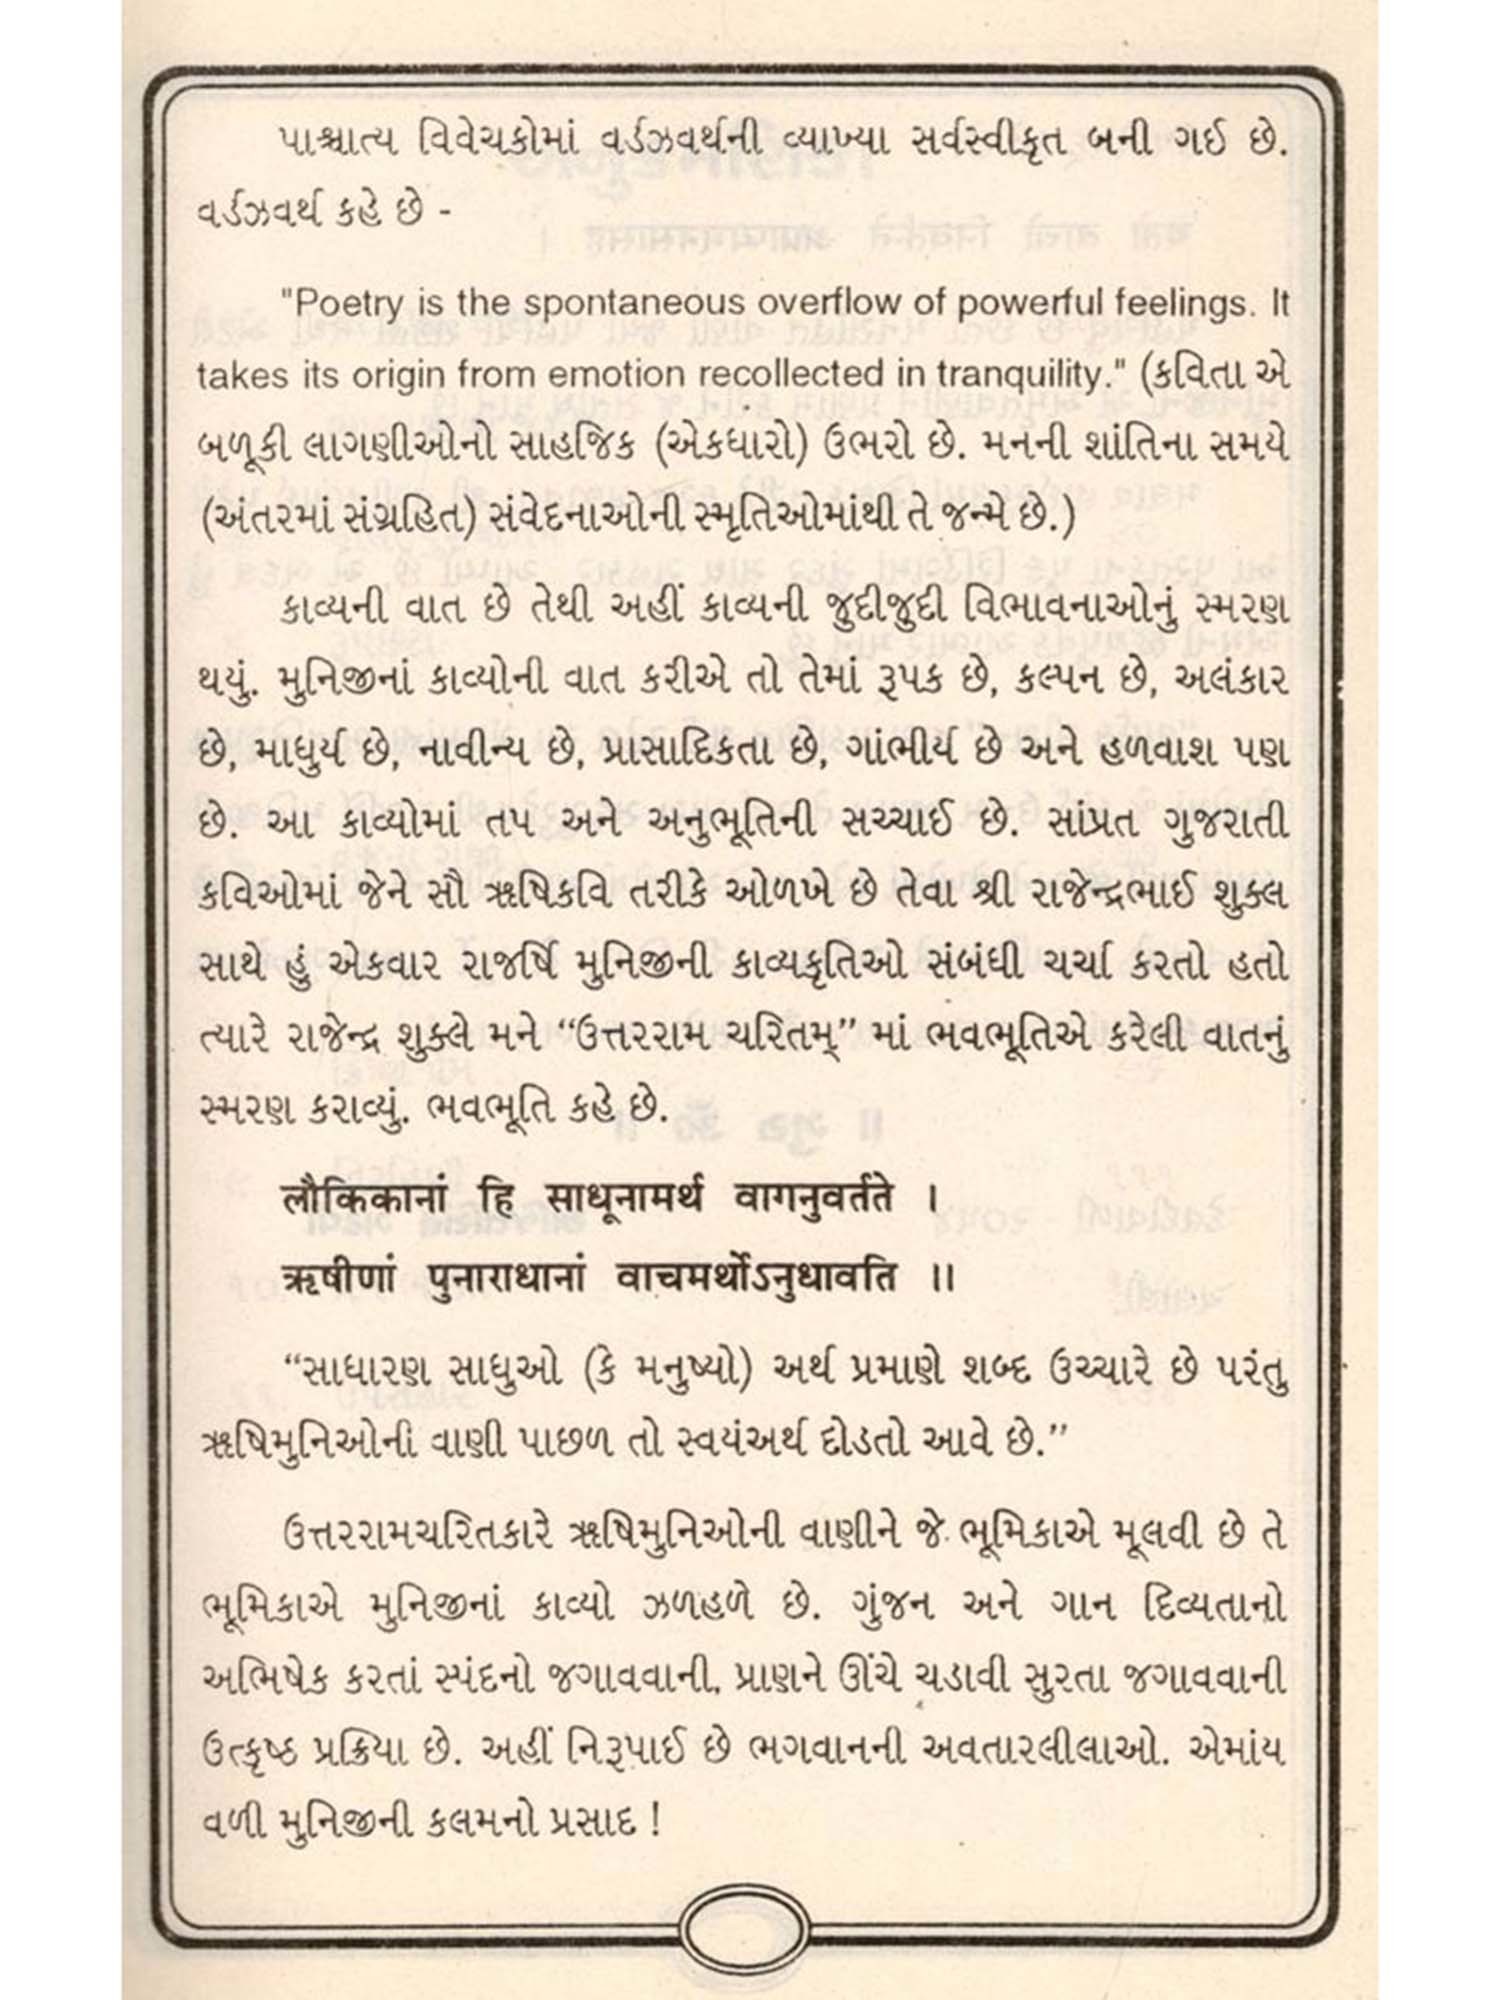 પાશ્ચાત્ય વિવેચકોમાં વર્ડઝવર્થની વ્યાખ્યા સર્વસ્વીકૃત બની ગઈ છે.
વર્ડઝવર્થ કહે છે -
"Poetry is the spontaneous overflow of powerful feelings. It
takes its origin from emotion recollected in tranquility." (કવિતા એ
બળૂકી લાગણીઓનો સાહજિક (એકધારો) ઉભરો છે. મનની શાંતિના સમયે
(અંતરમાં સંગ્રહિત) સંવેદનાઓની સ્મૃતિઓમાંથી તે જન્મે છે.)
કાવ્યની વાત છે તેથી અહીં કાવ્યની જુદીજુદી વિભાવનાઓનું સ્મરણ
થયું. મુનિજીનાં કાવ્યોની વાત કરીએ તો તેમાં રૂપક છે, કલ્પન છે, અલંકાર
છે, માધુર્ય છે, નાવીન્ય છે, પ્રાસાદિકતા છે, ગાંભીર્ય છે અને હળવાશ પણ
છે. આ કાવ્યોમાં તપ અને અનુભૂતિની સચ્ચાઈ છે. સાંપ્રત ગુજરાતી
કવિઓમાં જેને સૌ ઋષિકવિ તરીકે ઓળખે છે તેવા શ્રી રાજેન્દ્રભાઈ શુક્લ
સાથે હું એકવાર રાજર્ષિ મુનિજીની કાવ્યકૃતિઓ સંબંધી ચર્ચા કરતો હતો
ત્યારે રાજેન્દ્ર શુક્લે મને “ઉત્તરરામ ચરિતમ્” માં ભવભૂતિએ કરેલી વાતનું
સ્મરણ કરાવ્યું. ભવભૂતિ કહે છે.
लौकिकानां हि साधूनामर्थ वागनुवर्तते ।
ऋषीणां पुनाराधानां वाचमर्थोऽनुधावति ।।
“સાધારણ સાધુઓ (કે મનુષ્યો) અર્થ પ્રમાણે શબ્દ ઉચ્ચારે છે પરંતુ
ઋષિમુનિઓની વાણી પાછળ તો સ્વયંઅર્થ દોડતો આવે છે.”
ઉત્તરરામચરિતકારે ઋષિમુનિઓની વાણીને જે ભૂમિકાએ મૂલવી છે તે
ભૂમિકાએ મુનિજીનાં કાવ્યો ઝળહળે છે. ગુંજન અને ગાન દિવ્યતાનો
અભિષેક કરતાં સ્પંદનો જગાવવાની, પ્રાણને ઊંચે ચડાવી સુરતા જગાવવાની
ઉત્કૃષ્ઠ પ્રક્રિયા છે. અહીં નિરૂપાઈ છે ભગવાનની અવતારલીલાઓ. એમાંય
વળી મુનિજીની કલમનો પ્રસાદ !